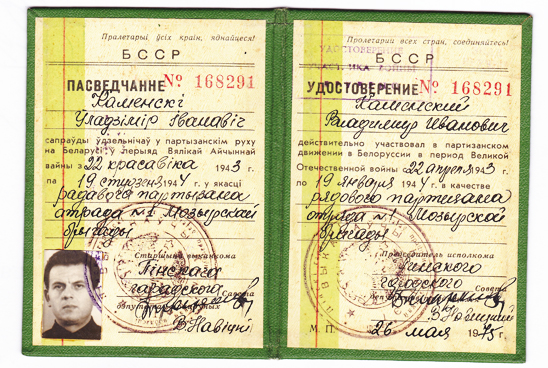 Пралетарыі ўсіх краін, яднайцеся!
БССР
ПАСВЕДЧАННЕ № 168291
Каменскі
Уладзімір Іванавіч
сапраўды ўдзельнічаў у партызанскім руху
на Беларусі ў перыяд Вялікай Айчыннай
вайны з 22 красавіка 1943 г.
па 19 студзеня 1944 г. у якасці
радавога партызана
атрада №1 Мозырскай
брыгады
Старшыня выканкома
Пінскага
гарадскога Савета
В. Навіцкі
Пролетарии всех стран, соединяйтесь!
УДОСТОВЕРЕНИЕ
БССР
УЧАСТНИКА ВОЙНЫ
УДОСТОВЕРЕНИЕ № 168291
Каменский
Владимир Иванович
действительно участвовал в партизанском
движении в Белоруссии в период Великой
Отечественной войны с 22 апреля 1943 г.
по 19 января 1944 г. в качестве
рядового партизана
отряда №1 Мозырской
бригады
Председатель исполкома
Пинского
городского Совета
В. Новицкий
М. П. 26 мая 1975 г.